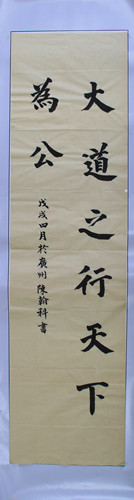 大道之行天下
為公
戊戌四月於廣州陳翰科書